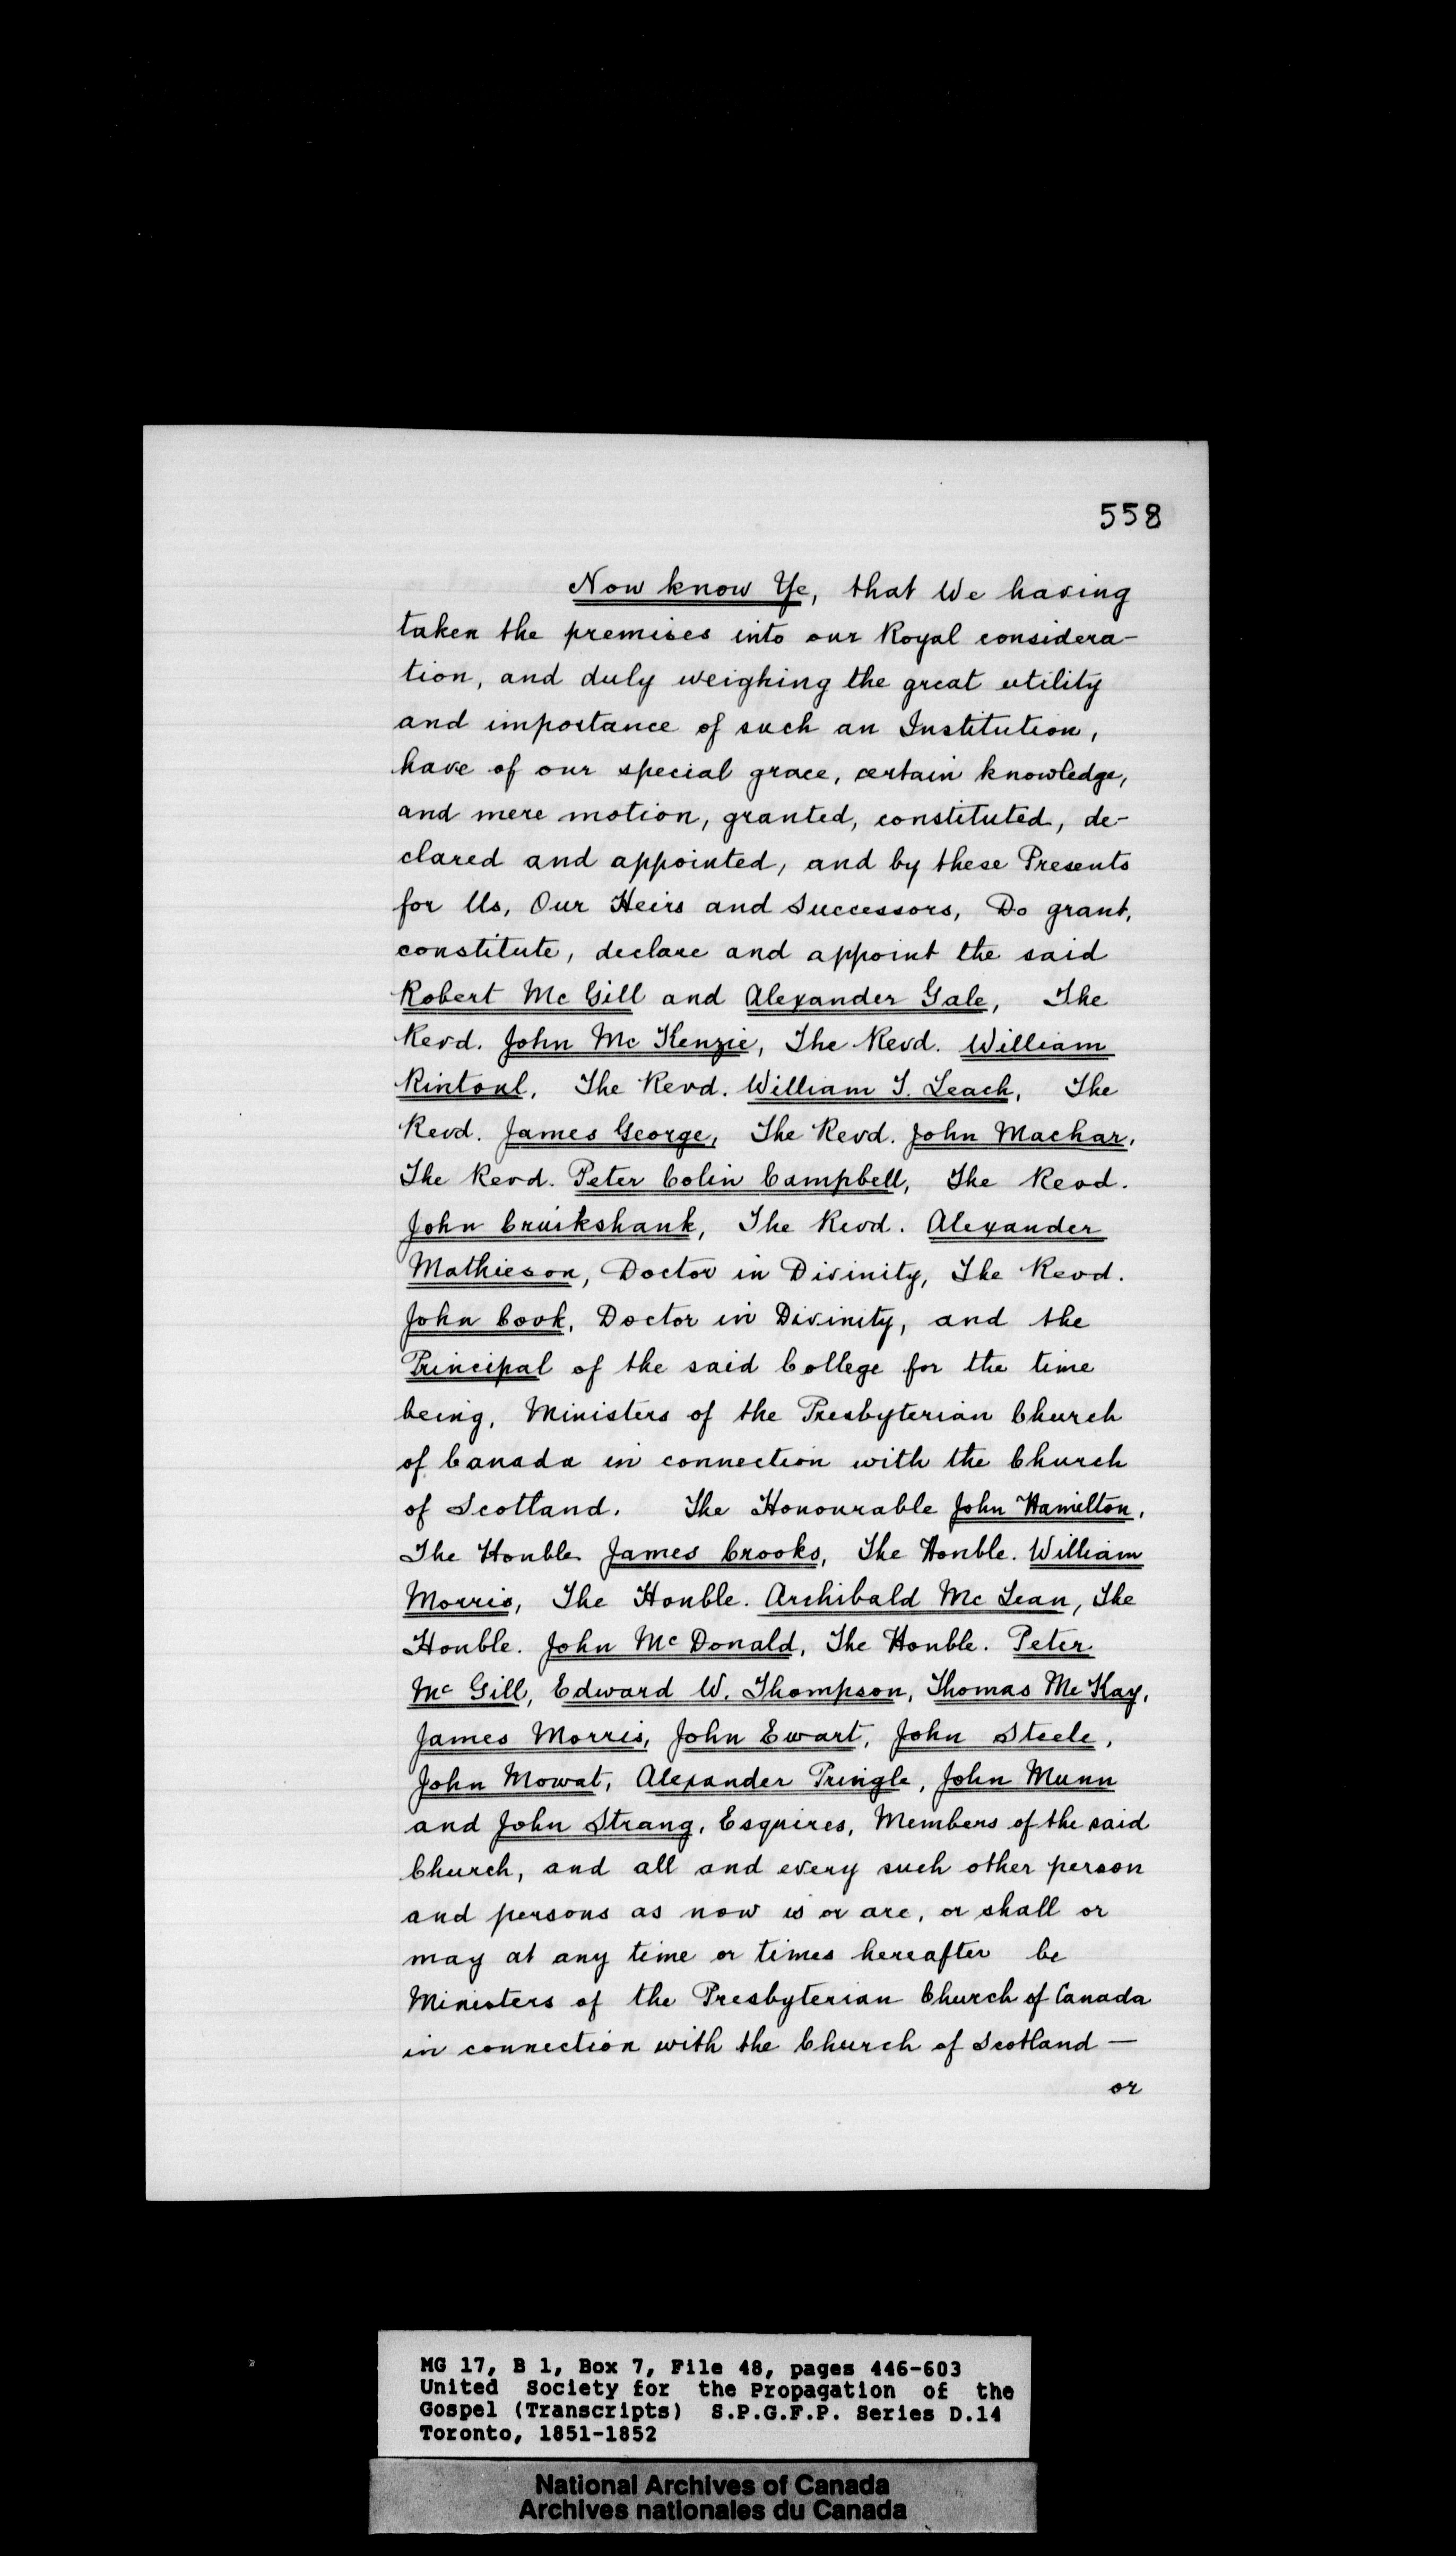 558
Now know Ye, that We having
taken the premises into our Royal considera-
tion, and duly weighing the great utility
and importance of such an Institution,
have of our special grace, certain knowledge,
and mere motion, granted, constituted, de-
clared and appointed, and by these Presents
for Us, Our Heirs and Successors, Do grant,
constitute, declare and appoint the said
Robert Mc Gill and Alexander Gale, The
Revd. John Mc Kenzie, The Revd. William
Rintoul, The Revd. William T. Leach, The
Revd. James George, The Revd. John Machar,
The Revd. Peter Colin Campbell, The Revd.
John Cruikshank, The Revd. Alexander
Mathieson, Doctor in Divinity, The Revd.
John Cook, Doctor in Divinity, and the
Principal of the said College for the time
being, Ministers of the Presbyterian Church
of Canada in connection with the Church
of Scotland. The Honourable John Hamilton,
The Honble. James Crooks, The Honble. William
Morris, The Honble. Archibald Mc Lean, The
Honble. John Mc Donald, The Honble. Peter
Mc Gill, Edward W. Thompson, Thomas Mc Kay,
James Morris, John Ewart, John Steele,
John Mowat, Alexander Pringle, John Munn
and John Strang, Esquires, Members of the said
Church, and all and every such other person
and persons as now is or are, or shall or
may at any time or times hereafter be
Ministers of the Presbyterian Church of Canada
in connection with the Church of Scotland —
or
MG 17, B 1, Box 7, File 48, pages 446-603
United Society for the Propagation of the
Gospel (Transcripts) S.P.G.F.P. Series D.14
Toronto, 1851-1852
National Archives of Canada
Archives nationales du Canada